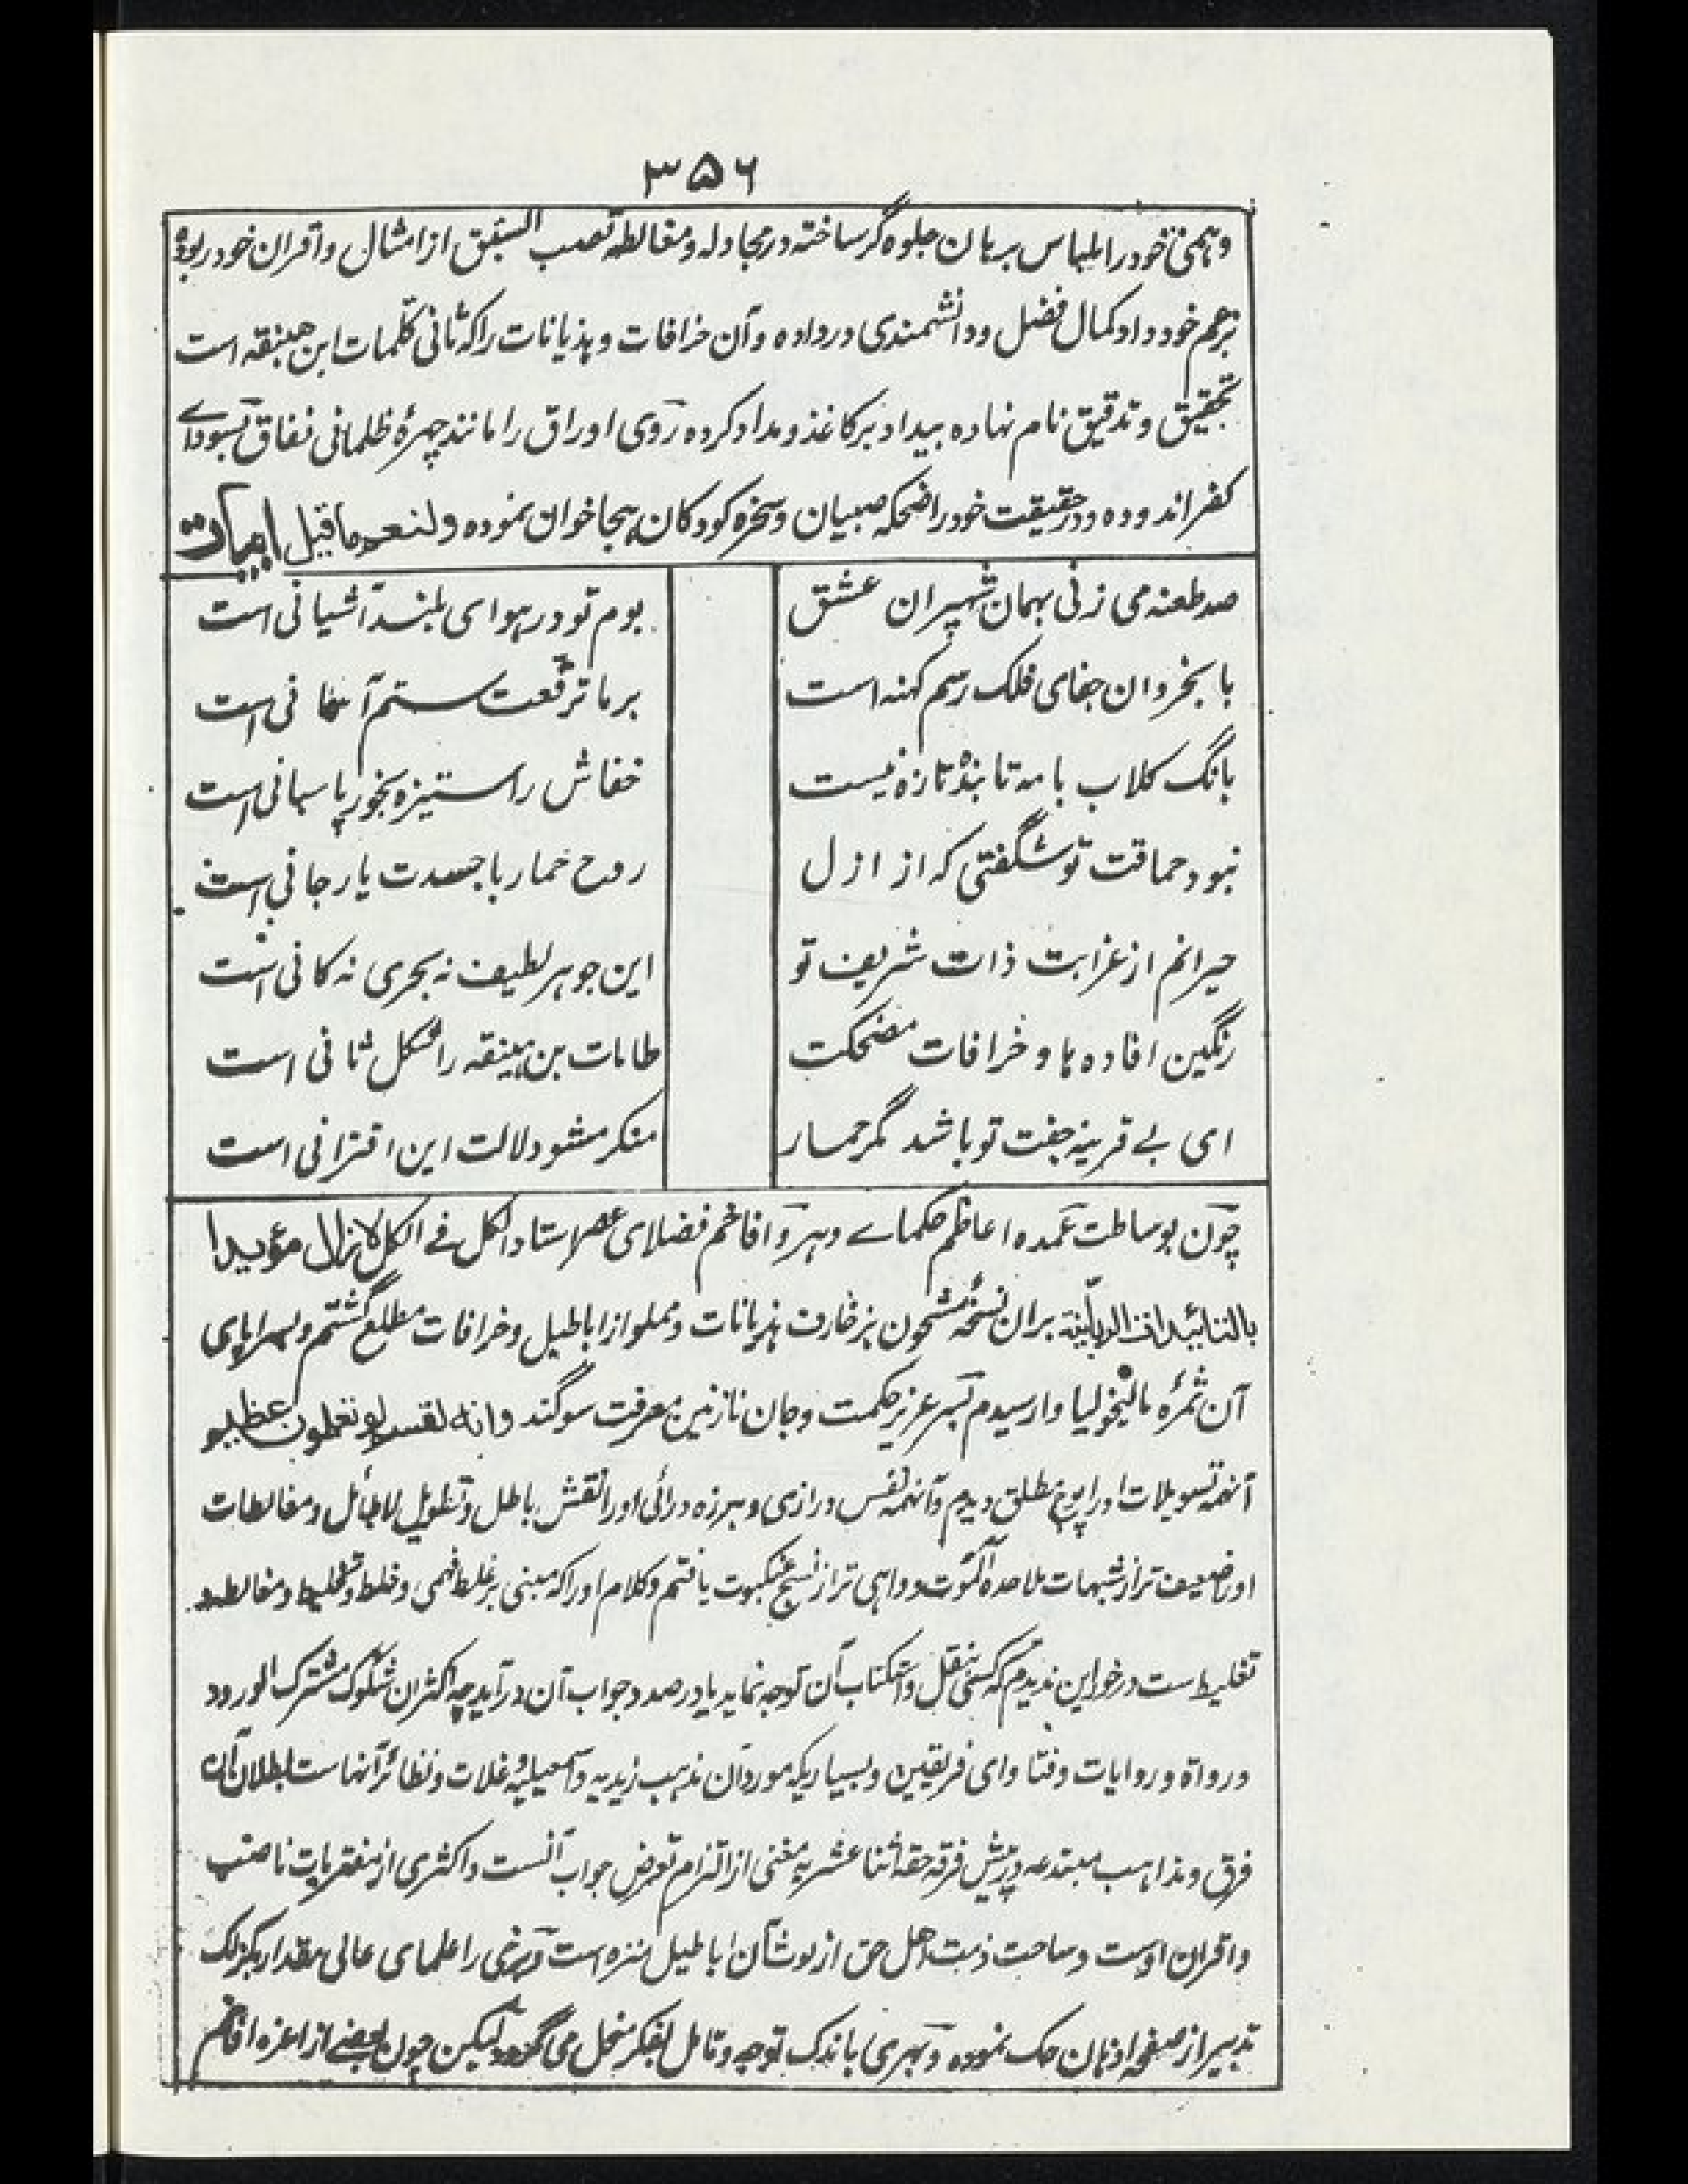 ۳۵۶
و همی خود را بلباس برهان جلوه گر ساخته در مجادله و مغالطه قصب السبق از امثال و اقران خود ربوده
بزعم خود داد کمال فضل و دانشمندی در داده و آن خرافات و هذیانات را که ثانی کلمات ابن هبنقه است
تحقیق و تدقیق نام نهاده بیداد بر کاغذ و مداد کرده روی اوراق را مانند چهرهٔ ظلمانی نفاق بسودای
کفر اندوده و در حقیقت خود را اضحکه صبیان و سخره کودکان هیجا خوان نموده ولنعم ما قیل ابیات
صد طعنه می زنی بهمان شهپران عشق
بوم تو در هوای بلند آشیانی است
با بخردان جفای فلک رسم کهنه است
بر ما ترفعت ستم آسمانی است
بانگ کلاب با مه تابنده تازه نیست
خفاش را ستیزه بخور پاسبانی است
نبود حماقت تو شگفتی که از ازل
روح حمار با جسدت یار جانی است
حیرانم از غرابت ذات شریف تو
این جوهر لطیف نه بحری نه کانی است
رنگین افاده ها و خرافات مضحکت
طامات بن هبنقه را شکل ثانی است
ای بے قرینه جفت تو باشد مگر حمار
منکر مشو دلالت این اقترانی است
چون بوساطت عمده اعاظم حکمای دهر و افاخم فضلای عصر استاد الکل فے الکل لا زال مؤیدا
بالتائیدات الربانیة بران نسخهٔ مشحون بزخارف هذیانات و مملو از اباطیل و خرافات مطلع گشتم و بسراپای
آن ثمرهٔ مالیخولیا وارسیدم بسر عزیز حکمت و جان نازنین معرفت سوگند وانه لقسم لو تعلمون عظیم
آنهمه تسویلات او را پوچ مطلق دیدم و آنهمه نفس درازی و هرزه درائی او را نقش باطل و تطویل لاطائل و مغالطات
او را ضعیف تر از شبهات ملاحده الموت و واهی تر از نسج عنکبوت یافتم و کلام او را که مبنی بر غلط فهمی و خلط و تخلیط و مغالطه و
تغلیط ست در خور این ندیدم که کسی بنقل و استکتاب آن توجه نماید یا در صدد جواب آن در آید چه اکثر ان شکوک مشترک الورود
در رواة و روایات و فتاوای فریقین و بسیاریکه مورد آن مذهب زیدیه و اسمعیلیه و غلات و نظائر آنهاست بطلان آن
فرق و مذاهب مبتدعه در پیش فرقه حقه اثنا عشریه مغنی از التزام تعرض جواب آنست و اکثری از مفتریات ناصب
و اقران اوست و ساحت ذمت اهل حق از لوث آن اباطیل منزه است و برخی را علمای عالی مقدار بکزلک
تدبیر از صفحه اذهان حک نموده و بهری باندک توجه و تامل بفکر منحل می گردد لیکن چون بعضے از اعزه افاخم